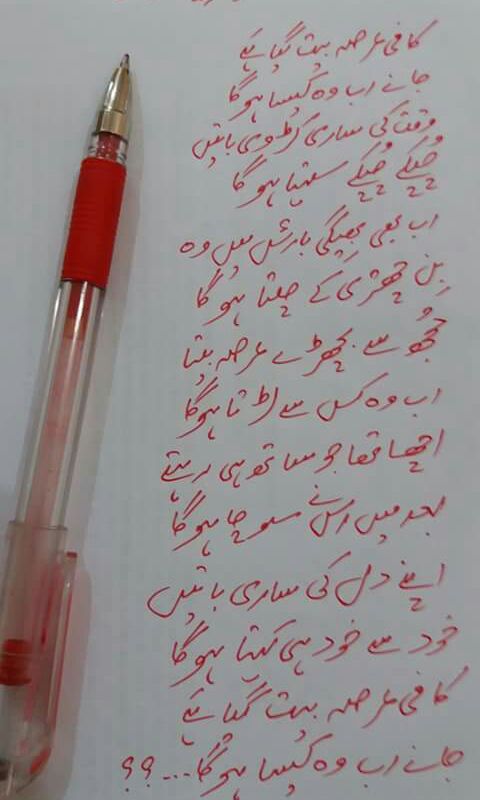 کافی عرصہ بیت گیا ہے
جانے اب وہ کیسا ہوگا
وقت کی ساری کڑوی باتیں
چپکے چپکے سہتا ہوگا
اب بھی بھیگی بارش میں وہ
بن چھتری کے چلتا ہوگا
مجھ سے بچھڑے عرصہ بیتا
اب وہ کس سے لڑتا ہوگا
اچھا تھا جو ساتھ ہی رہتے
بعد میں اس نے سوچا ہوگا
اپنے دل کی ساری باتیں
خود سے خود ہی کہتا ہوگا
کافی عرصہ بیت گیا ہے
جانے اب وہ کیسا ہوگا...؟؟